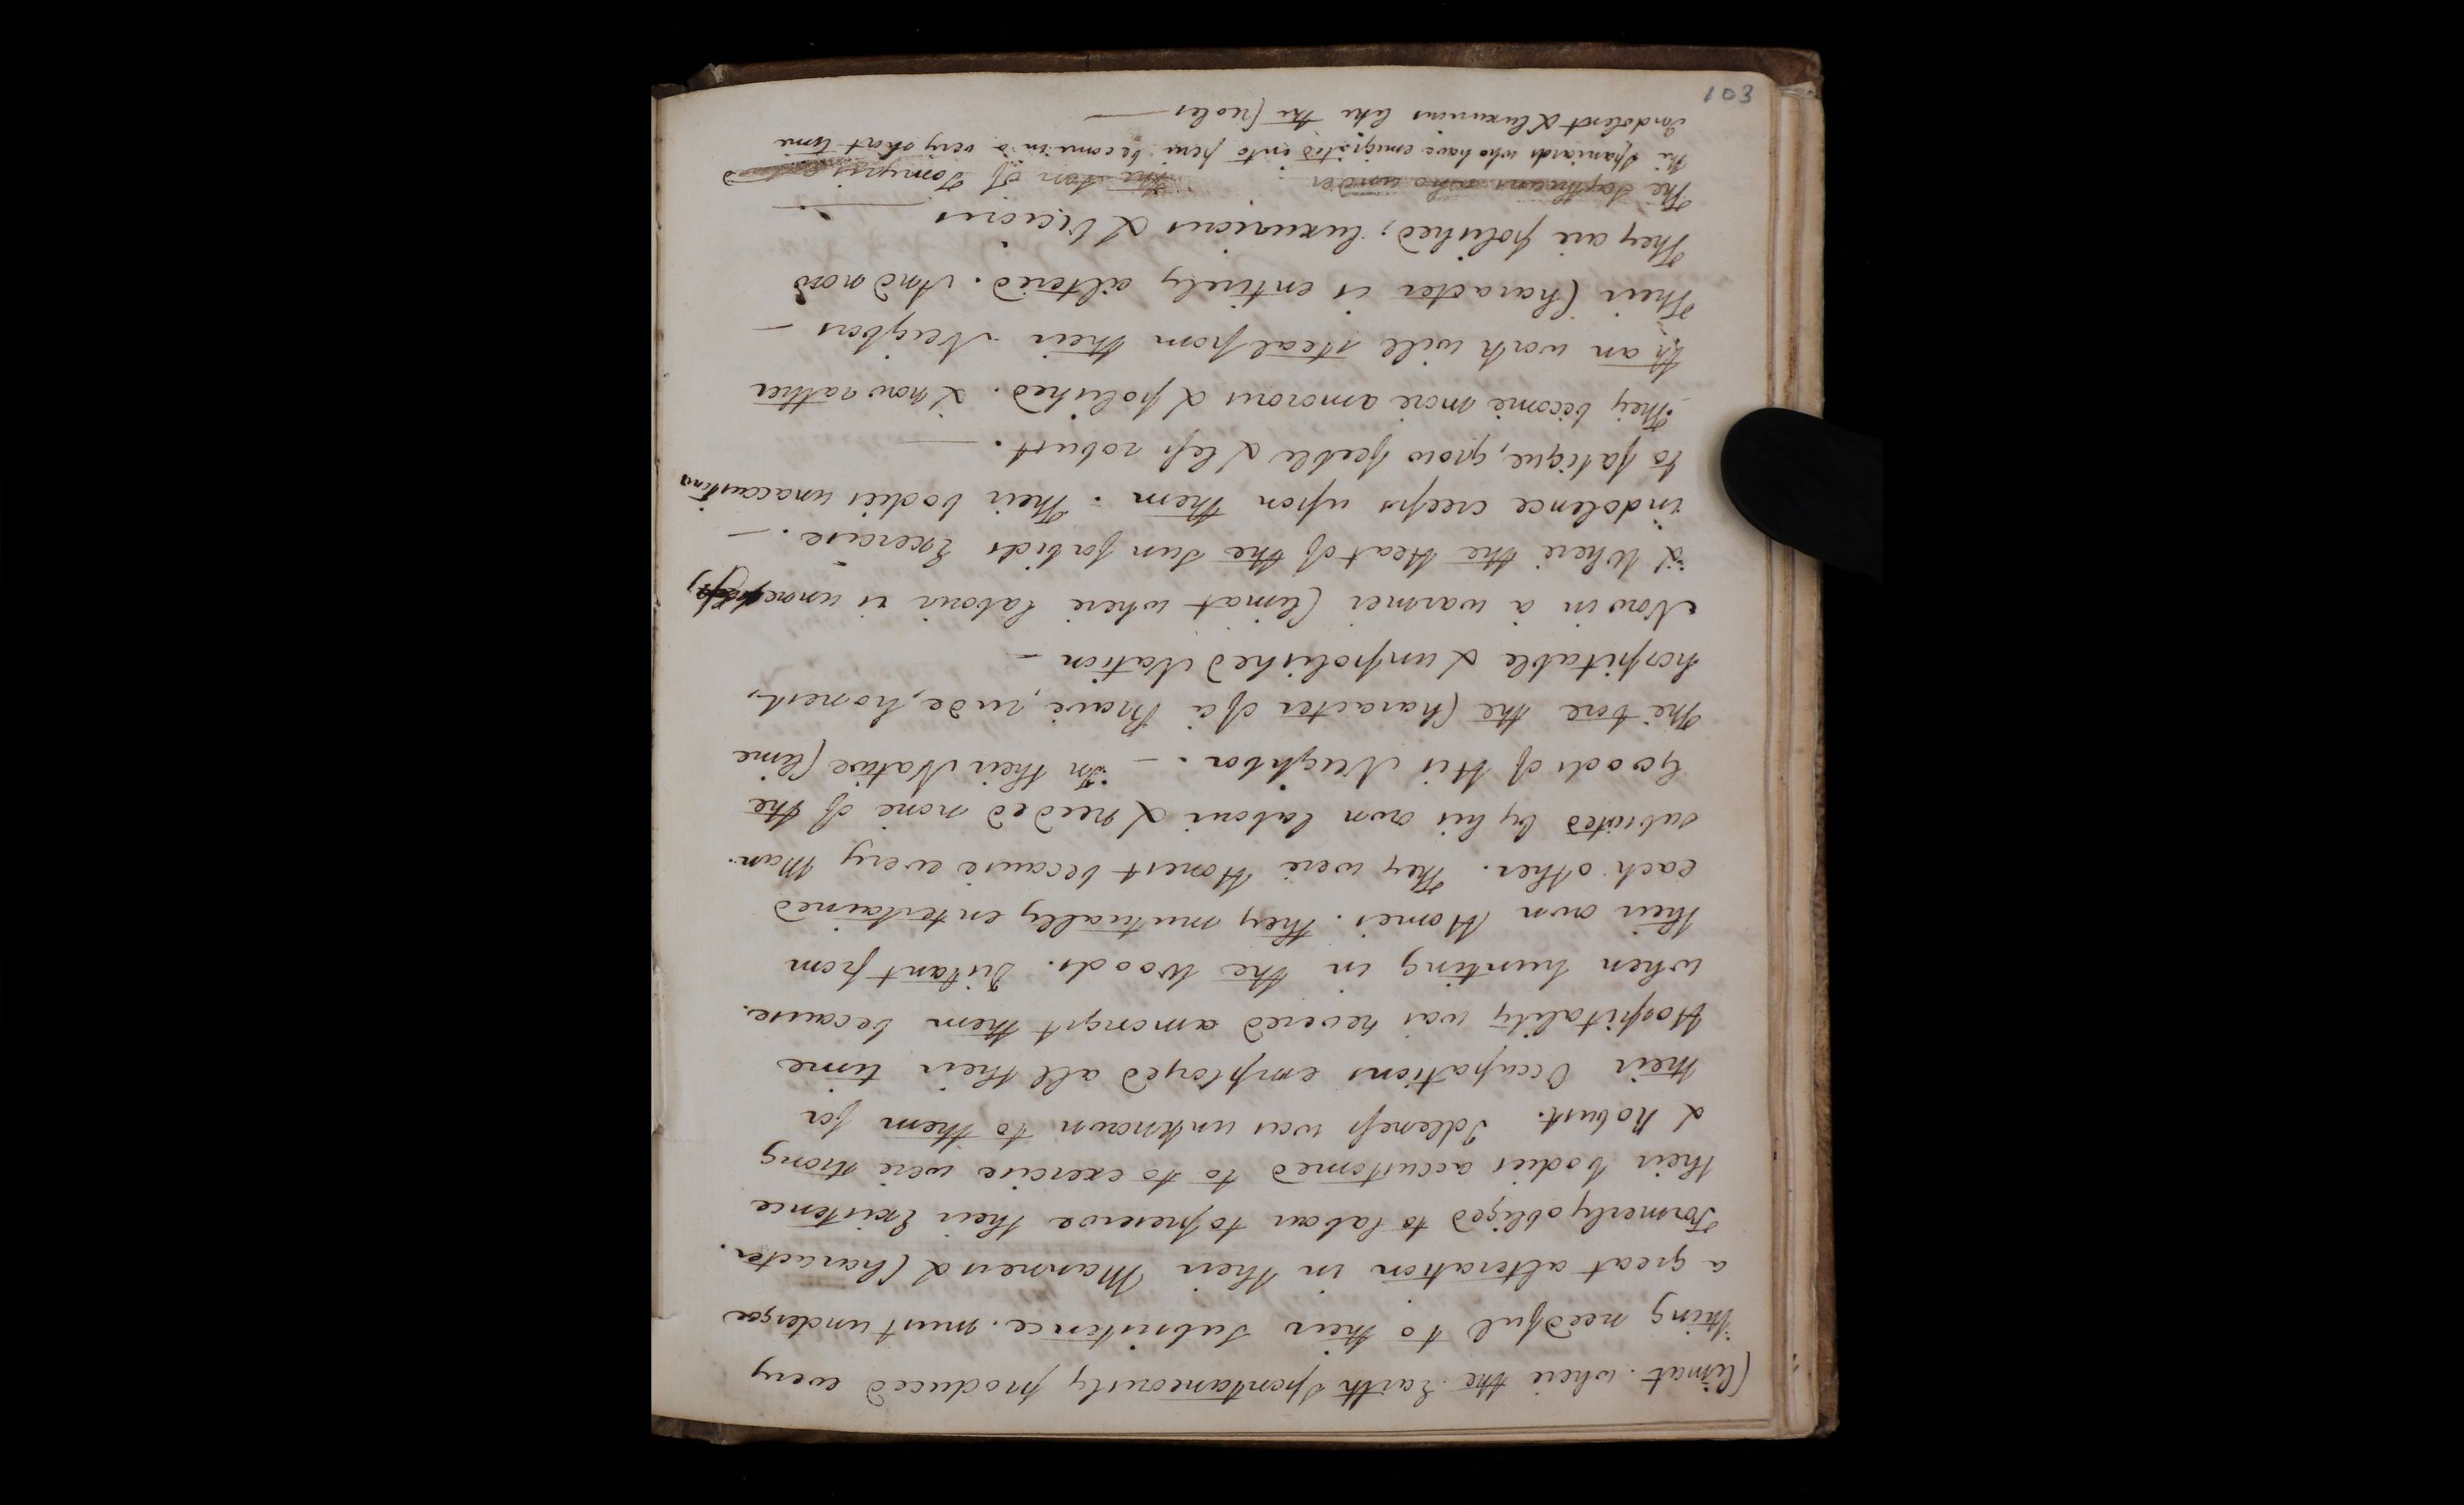 Climat. where the Earth Spontaneously produced every
thing needful to their Subsistence. must undergoe
a great alteration in their Manners & Character.
Formerly obliged to labour to preserve their Existence
their bodies accustomed to to exercise were strong
& Robust. Idleness was unknown to them for
their Occupations employed all their time
Hospitality was revered amongst them because.
when hunting in the Woods. Distant from
their own Homes. they mutually entertained
each other. They were Honest because every Man.
subsisted by his own labour & needed none of the
Goods of His Neighbor. — In their Native Clime
The bore the Character of a Brave, rude, honest,
hospitable & unpolished Nation —
Now in a warmer Climat where labour is
& Where the Heat of the Sun forbids Exercise. —
indolence creeps upon them. Their bodies unaccustomd
to fatigue, grow feeble & less robust. —
They become more amorous & polished. & now rather
than work will steal from their Neighbors —
Their Character is entirely altered. And now
They are polished; luxurious & Vicious —
The Scythians who under the son of Tomyris
The Spaniards who have emigrated into peru become in a very short time
Indolent & luxurious like the Creoles —
103